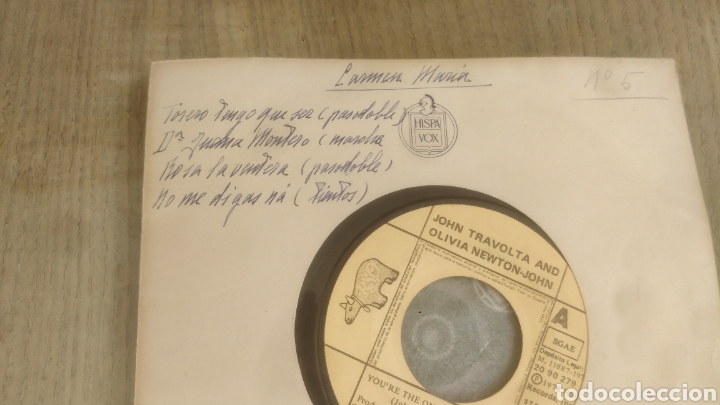 Carmen María
Nº 5
Torero tengo que ser (pasodoble)
Dª Juana Montero (marcha
Rosa la ventera (pasodoble)
No me digas ná (tientos)
HISPA
VOX
JOHN TRAVOLTA AND
OLIVIA NEWTON-JOHN
A
SGAE
Depósito Legal
M. 11687-19
20 98 279
YOU'RE THE ON
todocoleccion